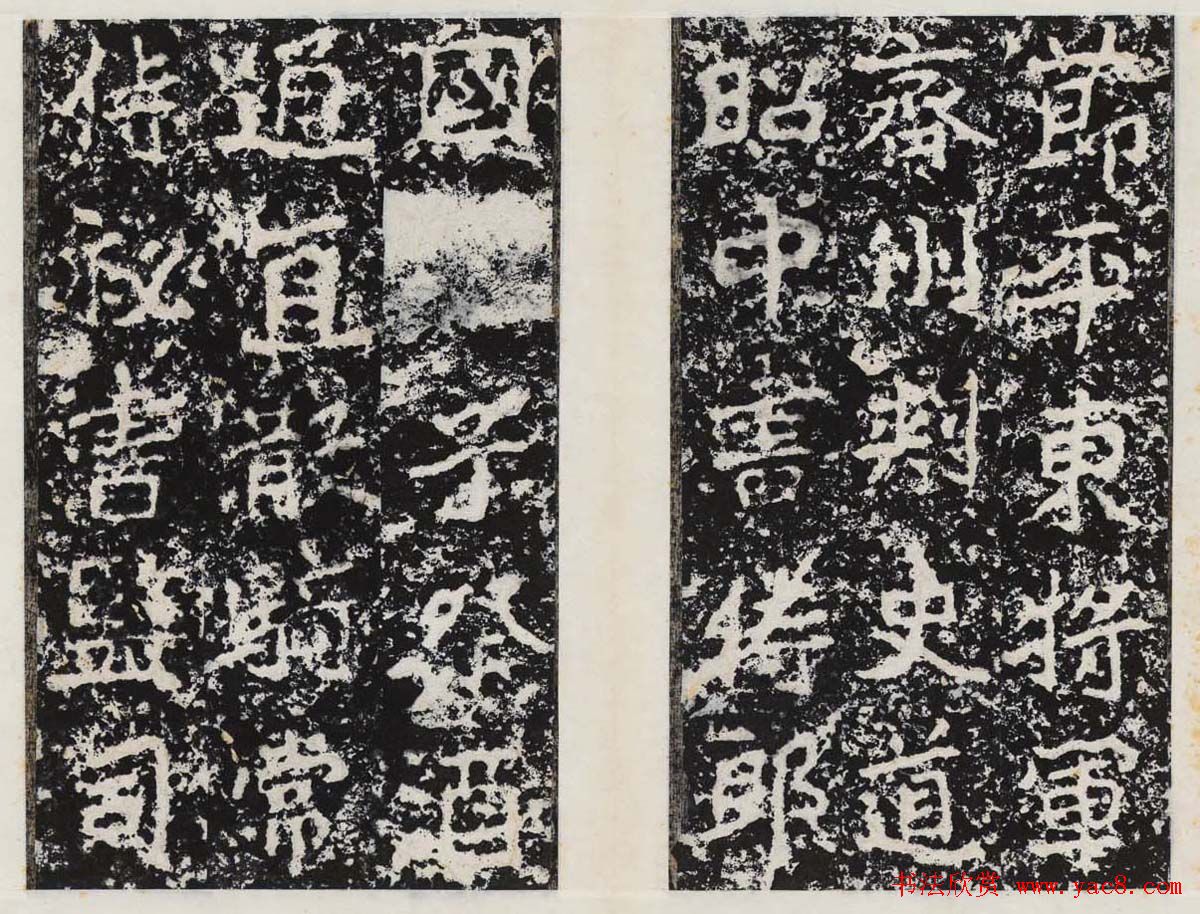 節平東將軍
齊州刺史道
昭中書侍郎
國子祭酒
通直散騎常
侍祕書監司
书法欣赏 www.yac8.com